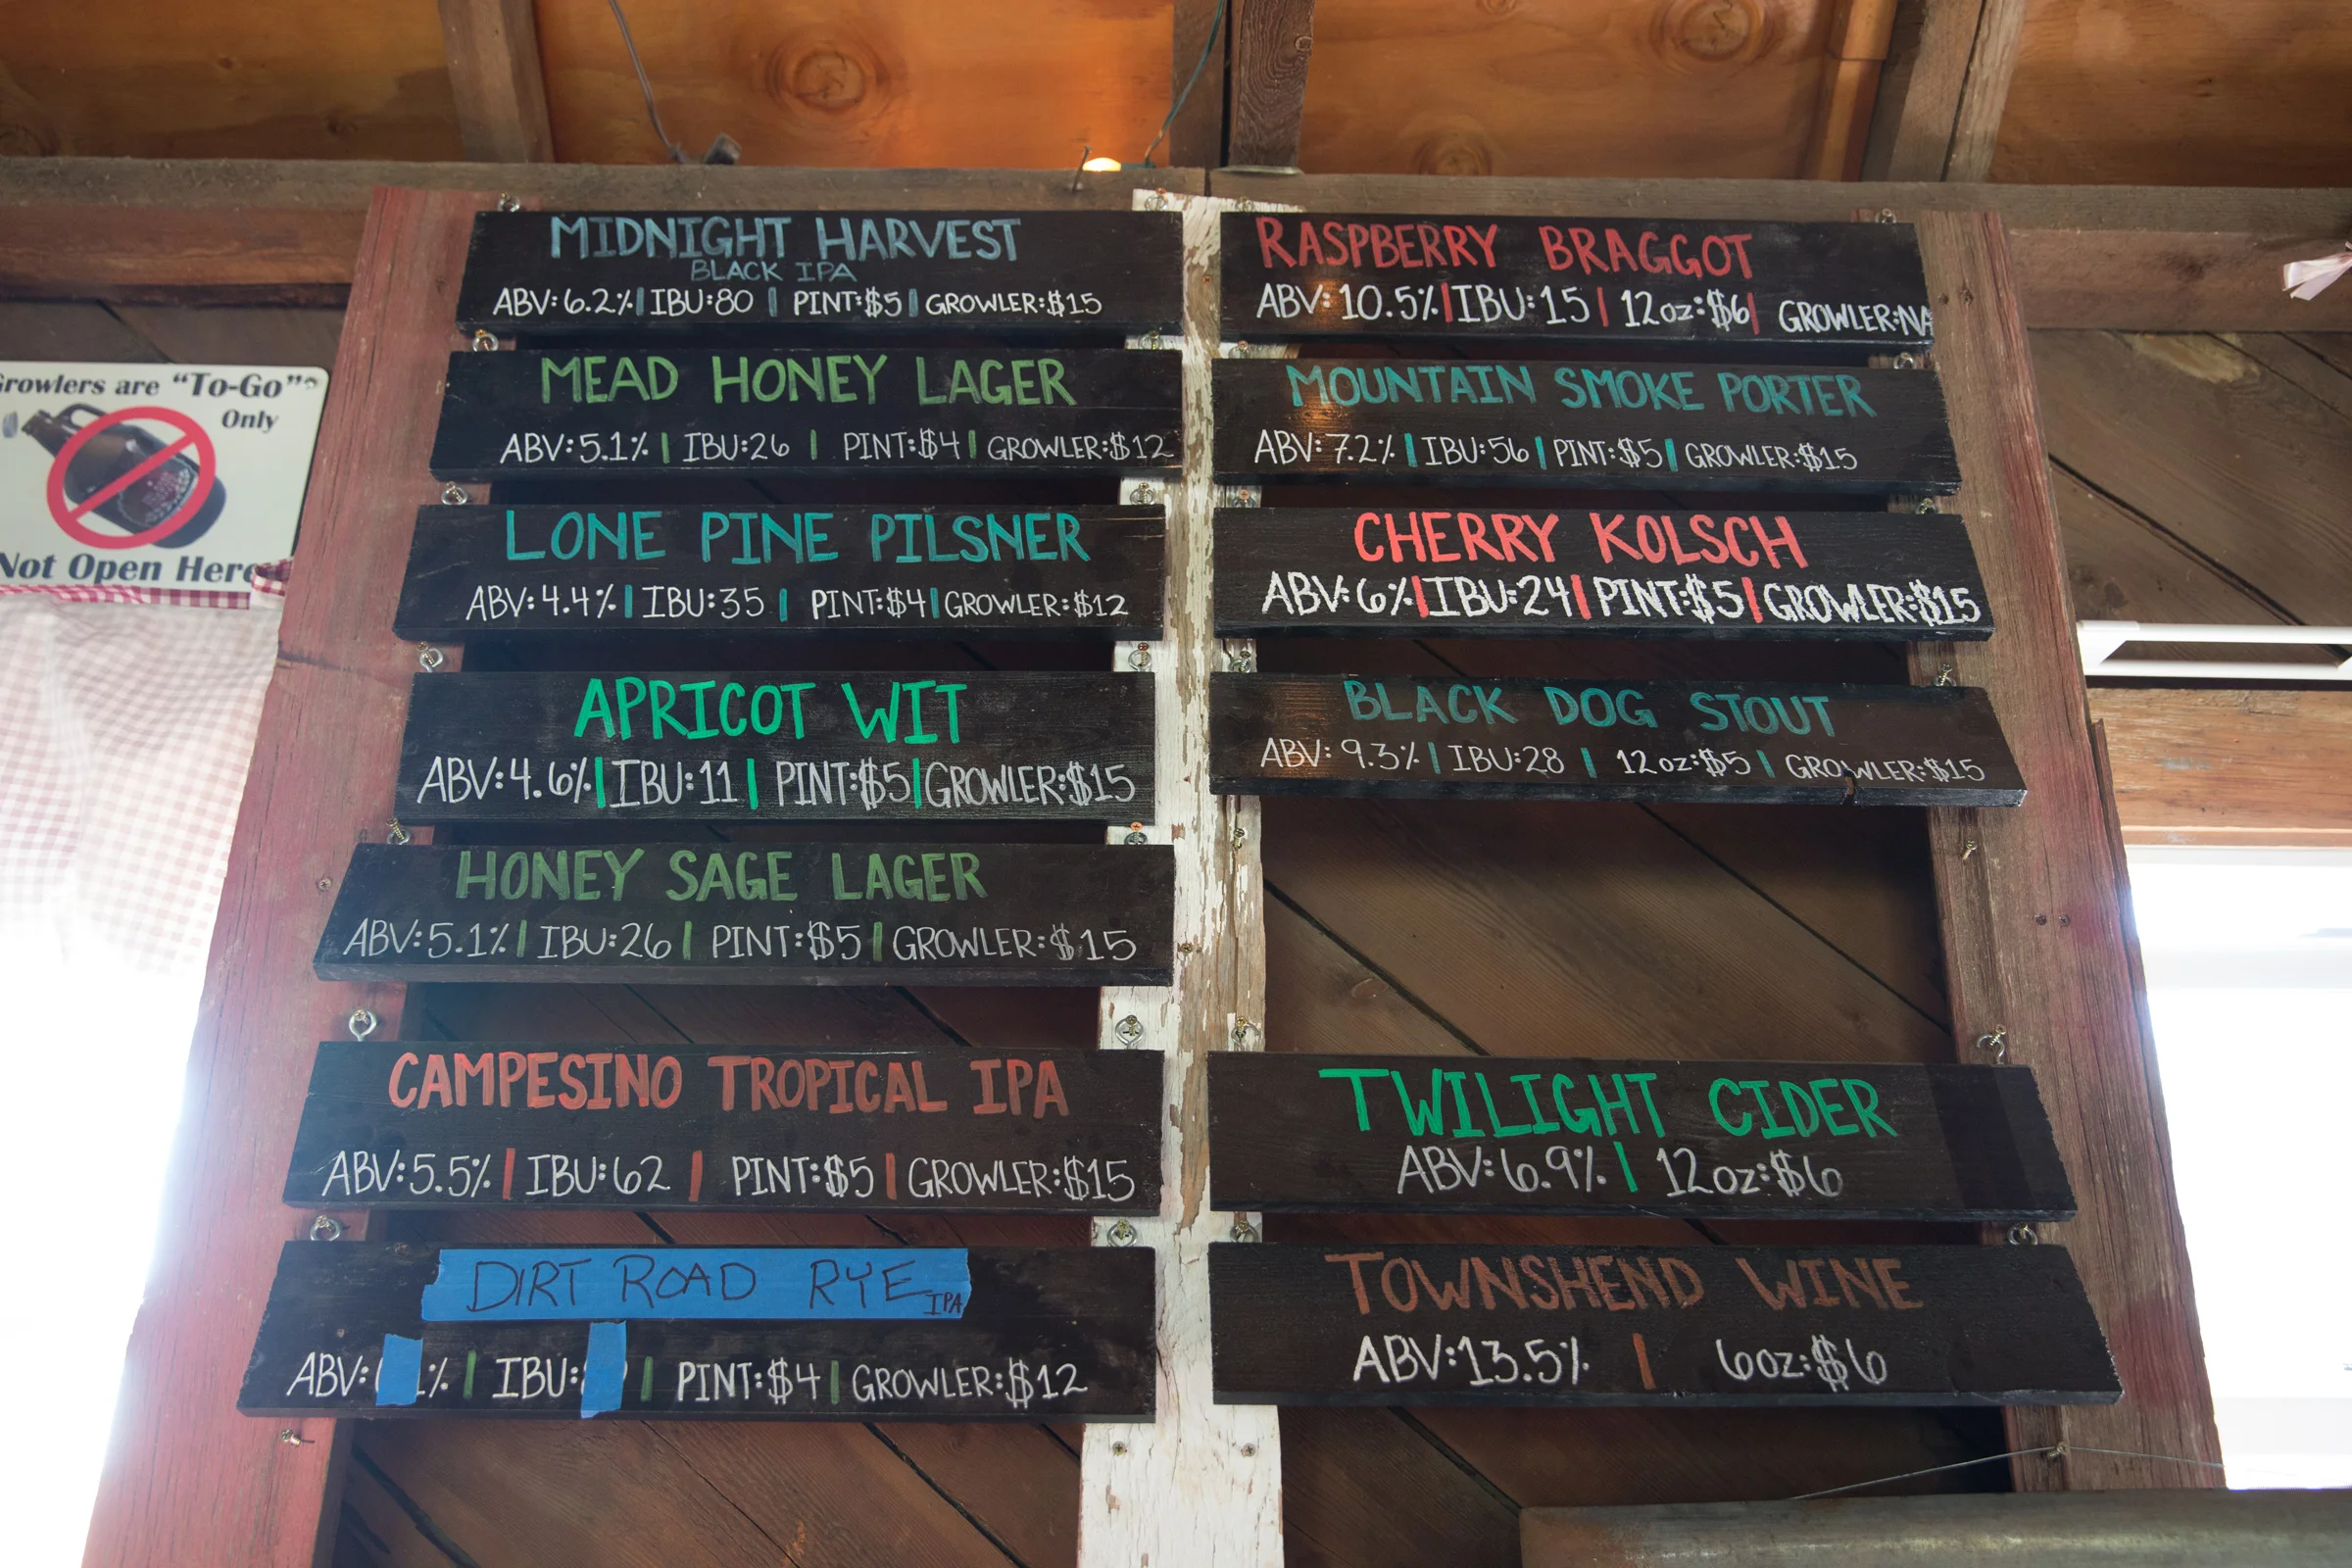 MIDNIGHT HARVEST
BLACK IPA
ABV:6.2% | IBU:80 | PINT:$5 | GROWLER:$15
MEAD HONEY LAGER
ABV:5.1% | IBU:26 | PINT:$4 | GROWLER:$12
LONE PINE PILSNER
ABV:4.4% | IBU:35 | PINT:$4 | GROWLER:$12
APRICOT WIT
ABV:4.6% | IBU:11 | PINT:$5 | GROWLER:$15
HONEY SAGE LAGER
ABV:5.1% | IBU:26 | PINT:$5 | GROWLER:$15
CAMPESINO TROPICAL IPA
ABV:5.5% | IBU:62 | PINT:$5 | GROWLER:$15
DIRT ROAD RYE IPA
ABV: % | IBU: | PINT:$4 | GROWLER:$12
RASPBERRY BRAGGOT
ABV:10.5% | IBU:15 | 12oz:$6 | GROWLER:NA
MOUNTAIN SMOKE PORTER
ABV:7.2% | IBU:56 | PINT:$5 | GROWLER:$15
CHERRY KOLSCH
ABV:6% | IBU:24 | PINT:$5 | GROWLER:$15
BLACK DOG STOUT
ABV:9.3% | IBU:28 | 12oz:$5 | GROWLER:$15
TWILIGHT CIDER
ABV:6.9% | 12oz:$6
TOWNSHEND WINE
ABV:13.5% | 6oz:$6
Growlers are "To-Go"
Only
Not Open Here